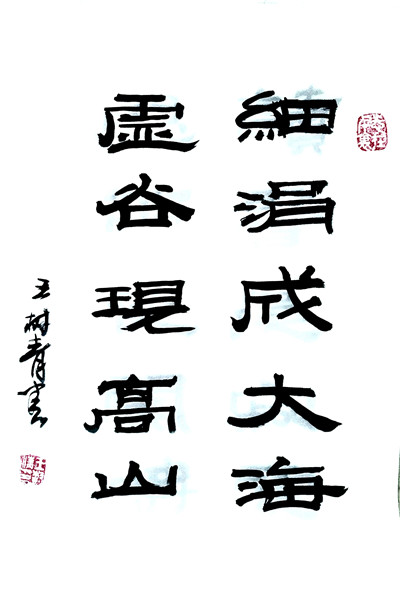 細涓成大海
虛谷現高山
王樹青書